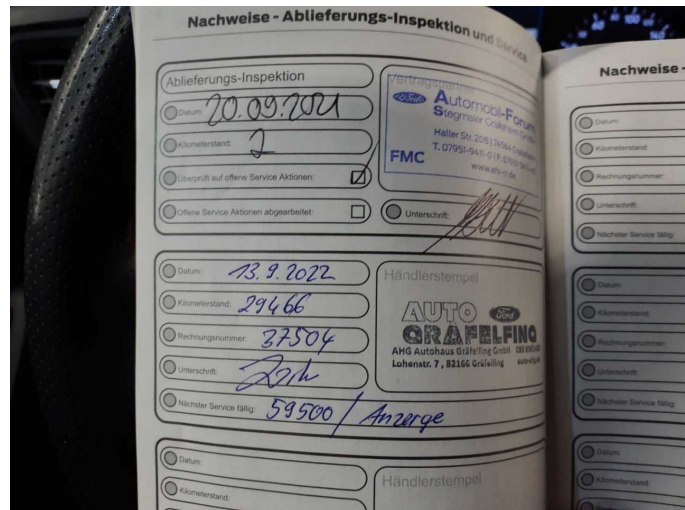 Nachweise - Ablieferungs-Inspektion und Service
Ablieferungs-Inspektion
Datum: 20.09.2021
Kilometerstand: 2
Überprüft auf offene Service Aktionen:
Offene Service Aktionen abgearbeitet:
Vertragspartner
Ford Automobil-Forum
Stegmaier Crailsheim GmbH
Haller Str. 208 | 74564 Crailsheim
FMC
www.afs-cr.de
Unterschrift:
Datum: 13.9.2022
Kilometerstand: 29466
Rechnungsnummer: 37504
Unterschrift:
Nächster Service fällig: 59500 / Anzeige
Händlerstempel
AUTO Ford
GRÄFELFING
AHG Autohaus Gräfelfing GmbH
Lohenstr. 7, 82166 Gräfelfing
Datum:
Kilometerstand:
Händlerstempel
Nachweise -
Datum:
Kilometerstand:
Rechnungsnummer:
Unterschrift:
Nächster Service fällig:
Datum:
Kilometerstand:
Rechnungsnummer:
Unterschrift:
Nächster Service fällig:
Datum:
Kilometerstand: